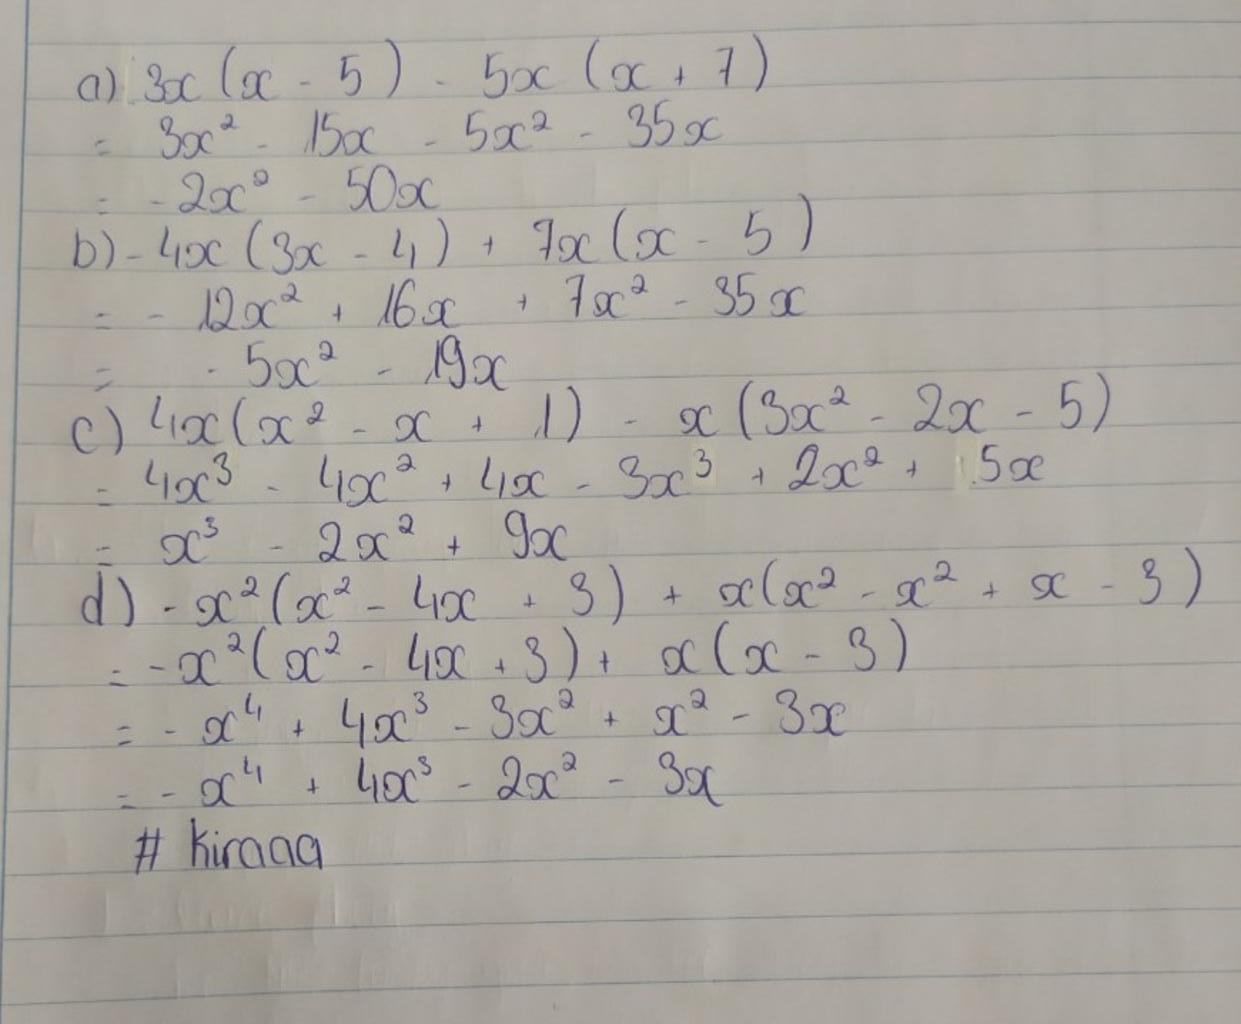 a) 3x (x - 5) - 5x (x + 7)
= 3x² - 15x - 5x² - 35x
= -2x² - 50x
b) -4x (3x - 4) + 7x (x - 5)
= - 12x² + 16x + 7x² - 35x
= - 5x² - 19x
c) 4x(x² - x + 1) - x (3x² - 2x - 5)
= 4x³ - 4x² + 4x - 3x³ + 2x² + 5x
= x³ - 2x² + 9x
d) -x² (x² - 4x + 3) + x(x² - x² + x - 3)
= -x² (x² - 4x + 3) + x (x - 3)
= - x⁴ + 4x³ - 3x² + x² - 3x
= - x⁴ + 4x³ - 2x² - 3x
# kiraaa